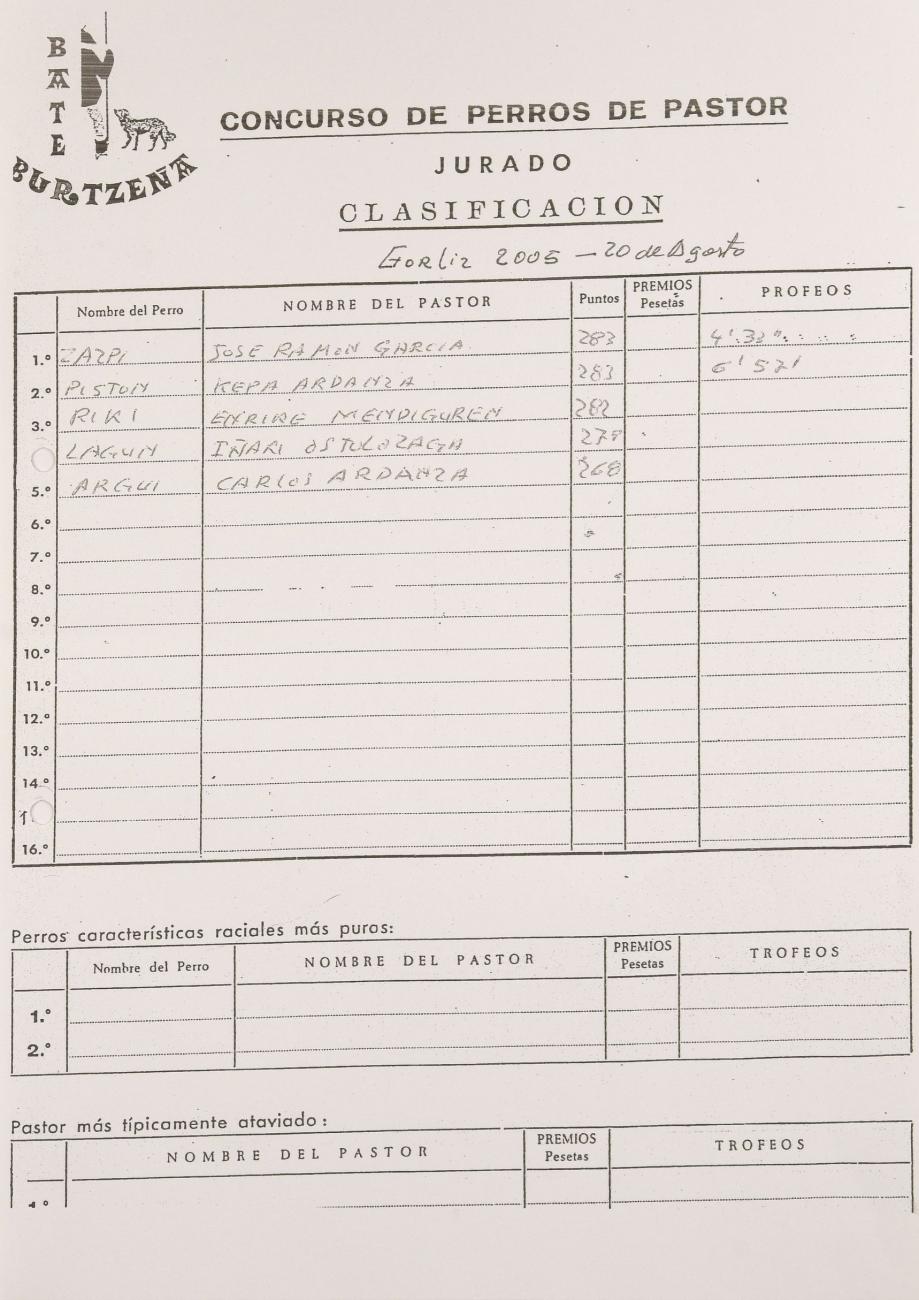 BATE
BURTZEÑA
CONCURSO DE PERROS DE PASTOR
JURADO
CLASIFICACION
Gorliz 2005 – 20 de Agosto
Nombre del Perro NOMBRE DEL PASTOR Puntos PREMIOS Pesetas PROFEOS
1.º ZAZPI JOSE RAMON GARCIA 283 4'.32"
2.º PISTON KEPA ARDANZA 283 6'52'
3.º RIKI ENRIKE MENDIGUREN 282
LAGUN IÑAKI OSTOLOZAGA 279
5.º ARGUI CARLOS ARDANZA 268
6.º
7.º
8.º
9.º
10.º
11.º
12.º
13.º
14.º
1
16.º
Perros características raciales más puras:
Nombre del Perro NOMBRE DEL PASTOR PREMIOS Pesetas TROFEOS
1.º
2.º
Pastor más típicamente ataviado:
NOMBRE DEL PASTOR PREMIOS Pesetas TROFEOS
1.º